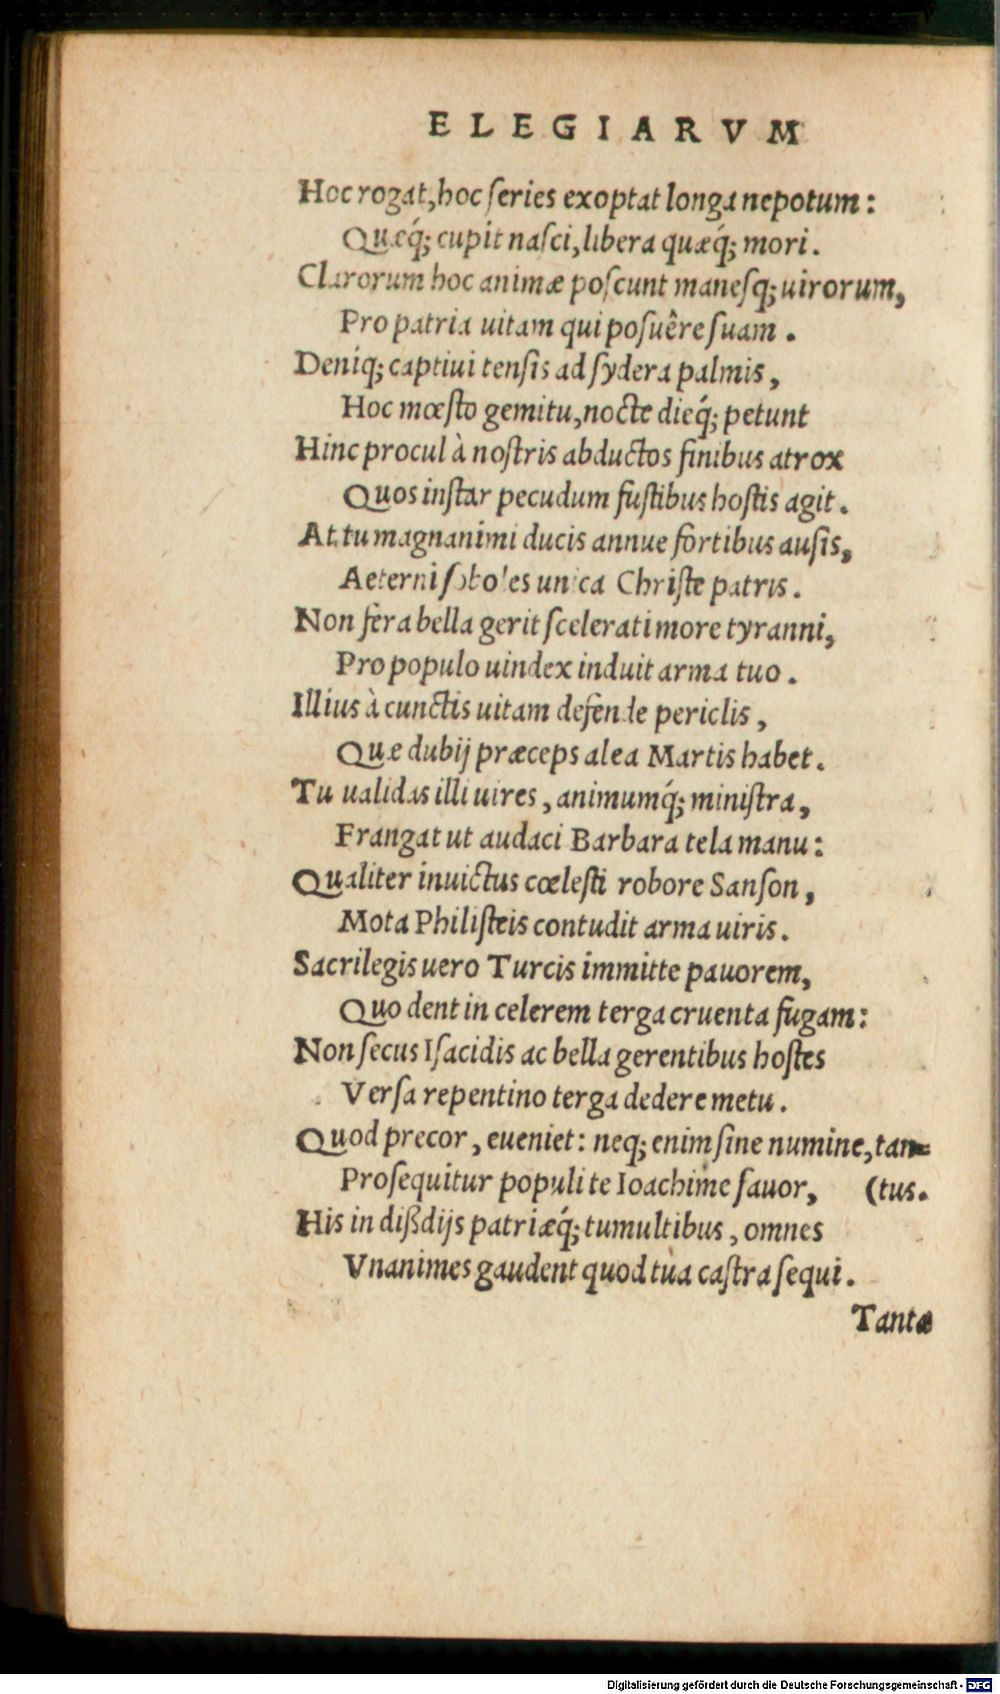 ELEGIARVM
Hoc rogat, hoc ſeries exoptat longa nepotum:
Quæq́; cupit naſci, libera quæq́; mori.
Clarorum hoc animæ poſcunt maneſq; uirorum,
Pro patria uitam qui poſuêre ſuam.
Deniq; captiui tenſis ad ſydera palmis,
Hoc mœſto gemitu, nocte dieq́; petunt
Hinc procul à noſtris abductos finibus atrox
Quos inſtar pecudum fuſtibus hoſtis agit.
At tu magnanimi ducis annue fortibus auſis,
Aeterni ſoboles unica Chriſte patris.
Non fera bella gerit ſcelerati more tyranni,
Pro populo uindex induit arma tuo.
Illius à cunctis uitam defende periclis,
Quæ dubij præceps alea Martis habet.
Tu ualidas illi uires, animumq́; miniſtra,
Frangat ut audaci Barbara tela manu:
Qualiter inuictus cœleſti robore Sanſon,
Mota Philiſteis contudit arma uiris.
Sacrilegis uero Turcis immitte pauorem,
Quo dent in celerem terga cruenta fugam:
Non ſecus Iſacidis ac bella gerentibus hoſtes
Verſa repentino terga dedere metu.
Quod precor, eueniet: neq; enim ſine numine, tan=
Proſequitur populi te Ioachime fauor, (tus.
His in dißdijs patriæq́; tumultibus, omnes
Vnanimes gaudent quod tua caſtra ſequi.
Tantæ
Digitalisierung gefördert durch die Deutsche Forschungsgemeinschaft - DFG